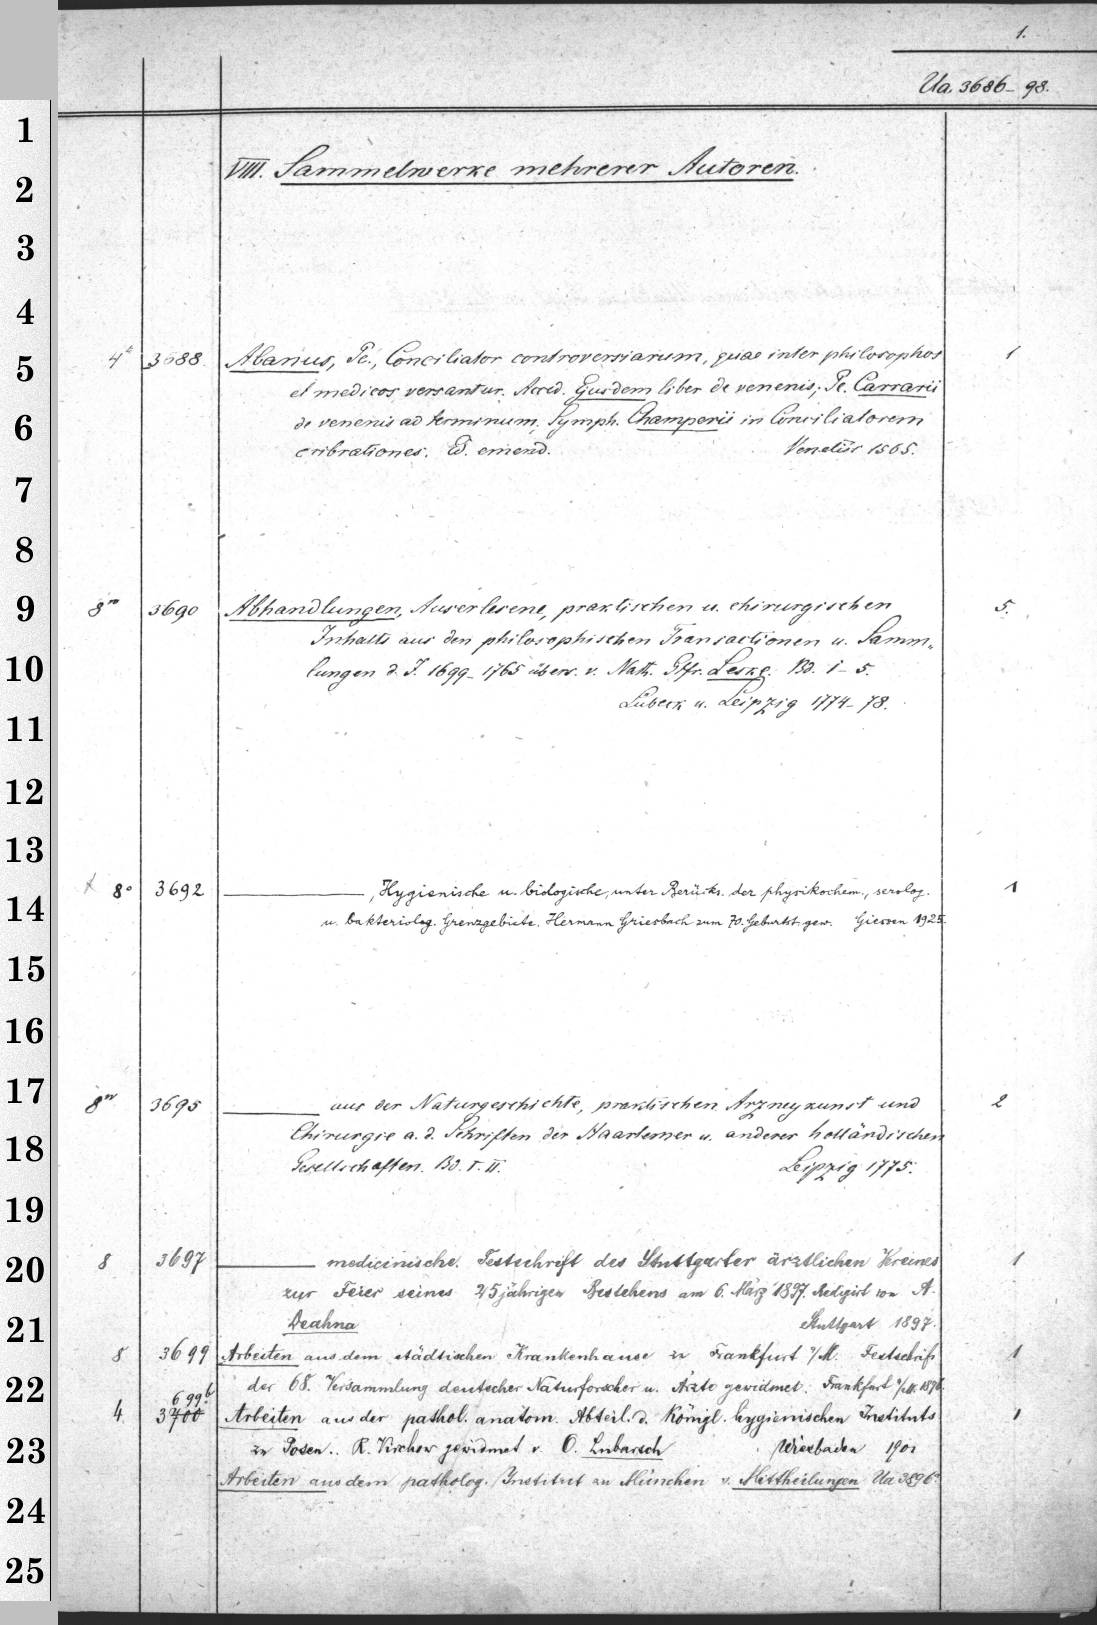 1.
Ua. 3686-98.
1
2
3
4
5
6
7
8
9
10
11
12
13
14
15
16
17
18
19
20
21
22
23
24
25
VIII. Sammelwerke mehrerer Autoren.
4° 3688 Abanus, Pe., Conciliator controversiarum, quae inter philosophos 1
et medicos versantur. Acced. Ejusdem liber de venenis; Pe. Carrarii
de venenis ad terminum, Symph. Champerii in Conciliatorem
cribrationes. Ed. emend. Venetiis 1565.
8vo 3690 Abhandlungen, Auserlesene, praktischen u. chirurgischen 5.
Inhalts aus den philosophischen Transactionen u. Samm„
lungen d. J. 1699-1765 übers. v. Nath. Gtfr. Leske. Bd. 1-5.
Lübeck u. Leipzig 1774-78.
8° 3692 ———, Hygienische u. biologische, unter Berücks. der physikochem., serolog. 1
u. bakteriolog. Grenzgebiete. Hermann Griesbach zum 70. Geburtst. gew. Giessen 1925.
8vo 3695 ——— aus der Naturgeschichte, praktischen Arzneykunst und 2
Chirurgie a. d. Schriften der Haarlemer u. anderer holländischen
Gesellschaften. Bd. I. II. Leipzig 1775.
8 3697 ——— medicinische. Festschrift des Stuttgarter ärztlichen Vereines 1
zur Feier seines 25jährigen Bestehens am 6. März 1897. Redigirt von A.
Deahna Stuttgart 1897.
8 3699 Arbeiten aus dem städtischen Krankenhause zu Frankfurt a/M. Festschrift 1
der 68. Versammlung deutscher Naturforscher u. Ärzte gewidmet. Frankfurt a/M. 1896.
699b
4 3700 Arbeiten aus der pathol. anatom. Abteil. d. Königl. hygienischen Instituts 1
zu Posen.. R. Virchow gewidmet v. O. Lubarsch Wiesbaden 1901
Arbeiten aus dem patholog. Institut zu München v. Mittheilungen Ua 3896